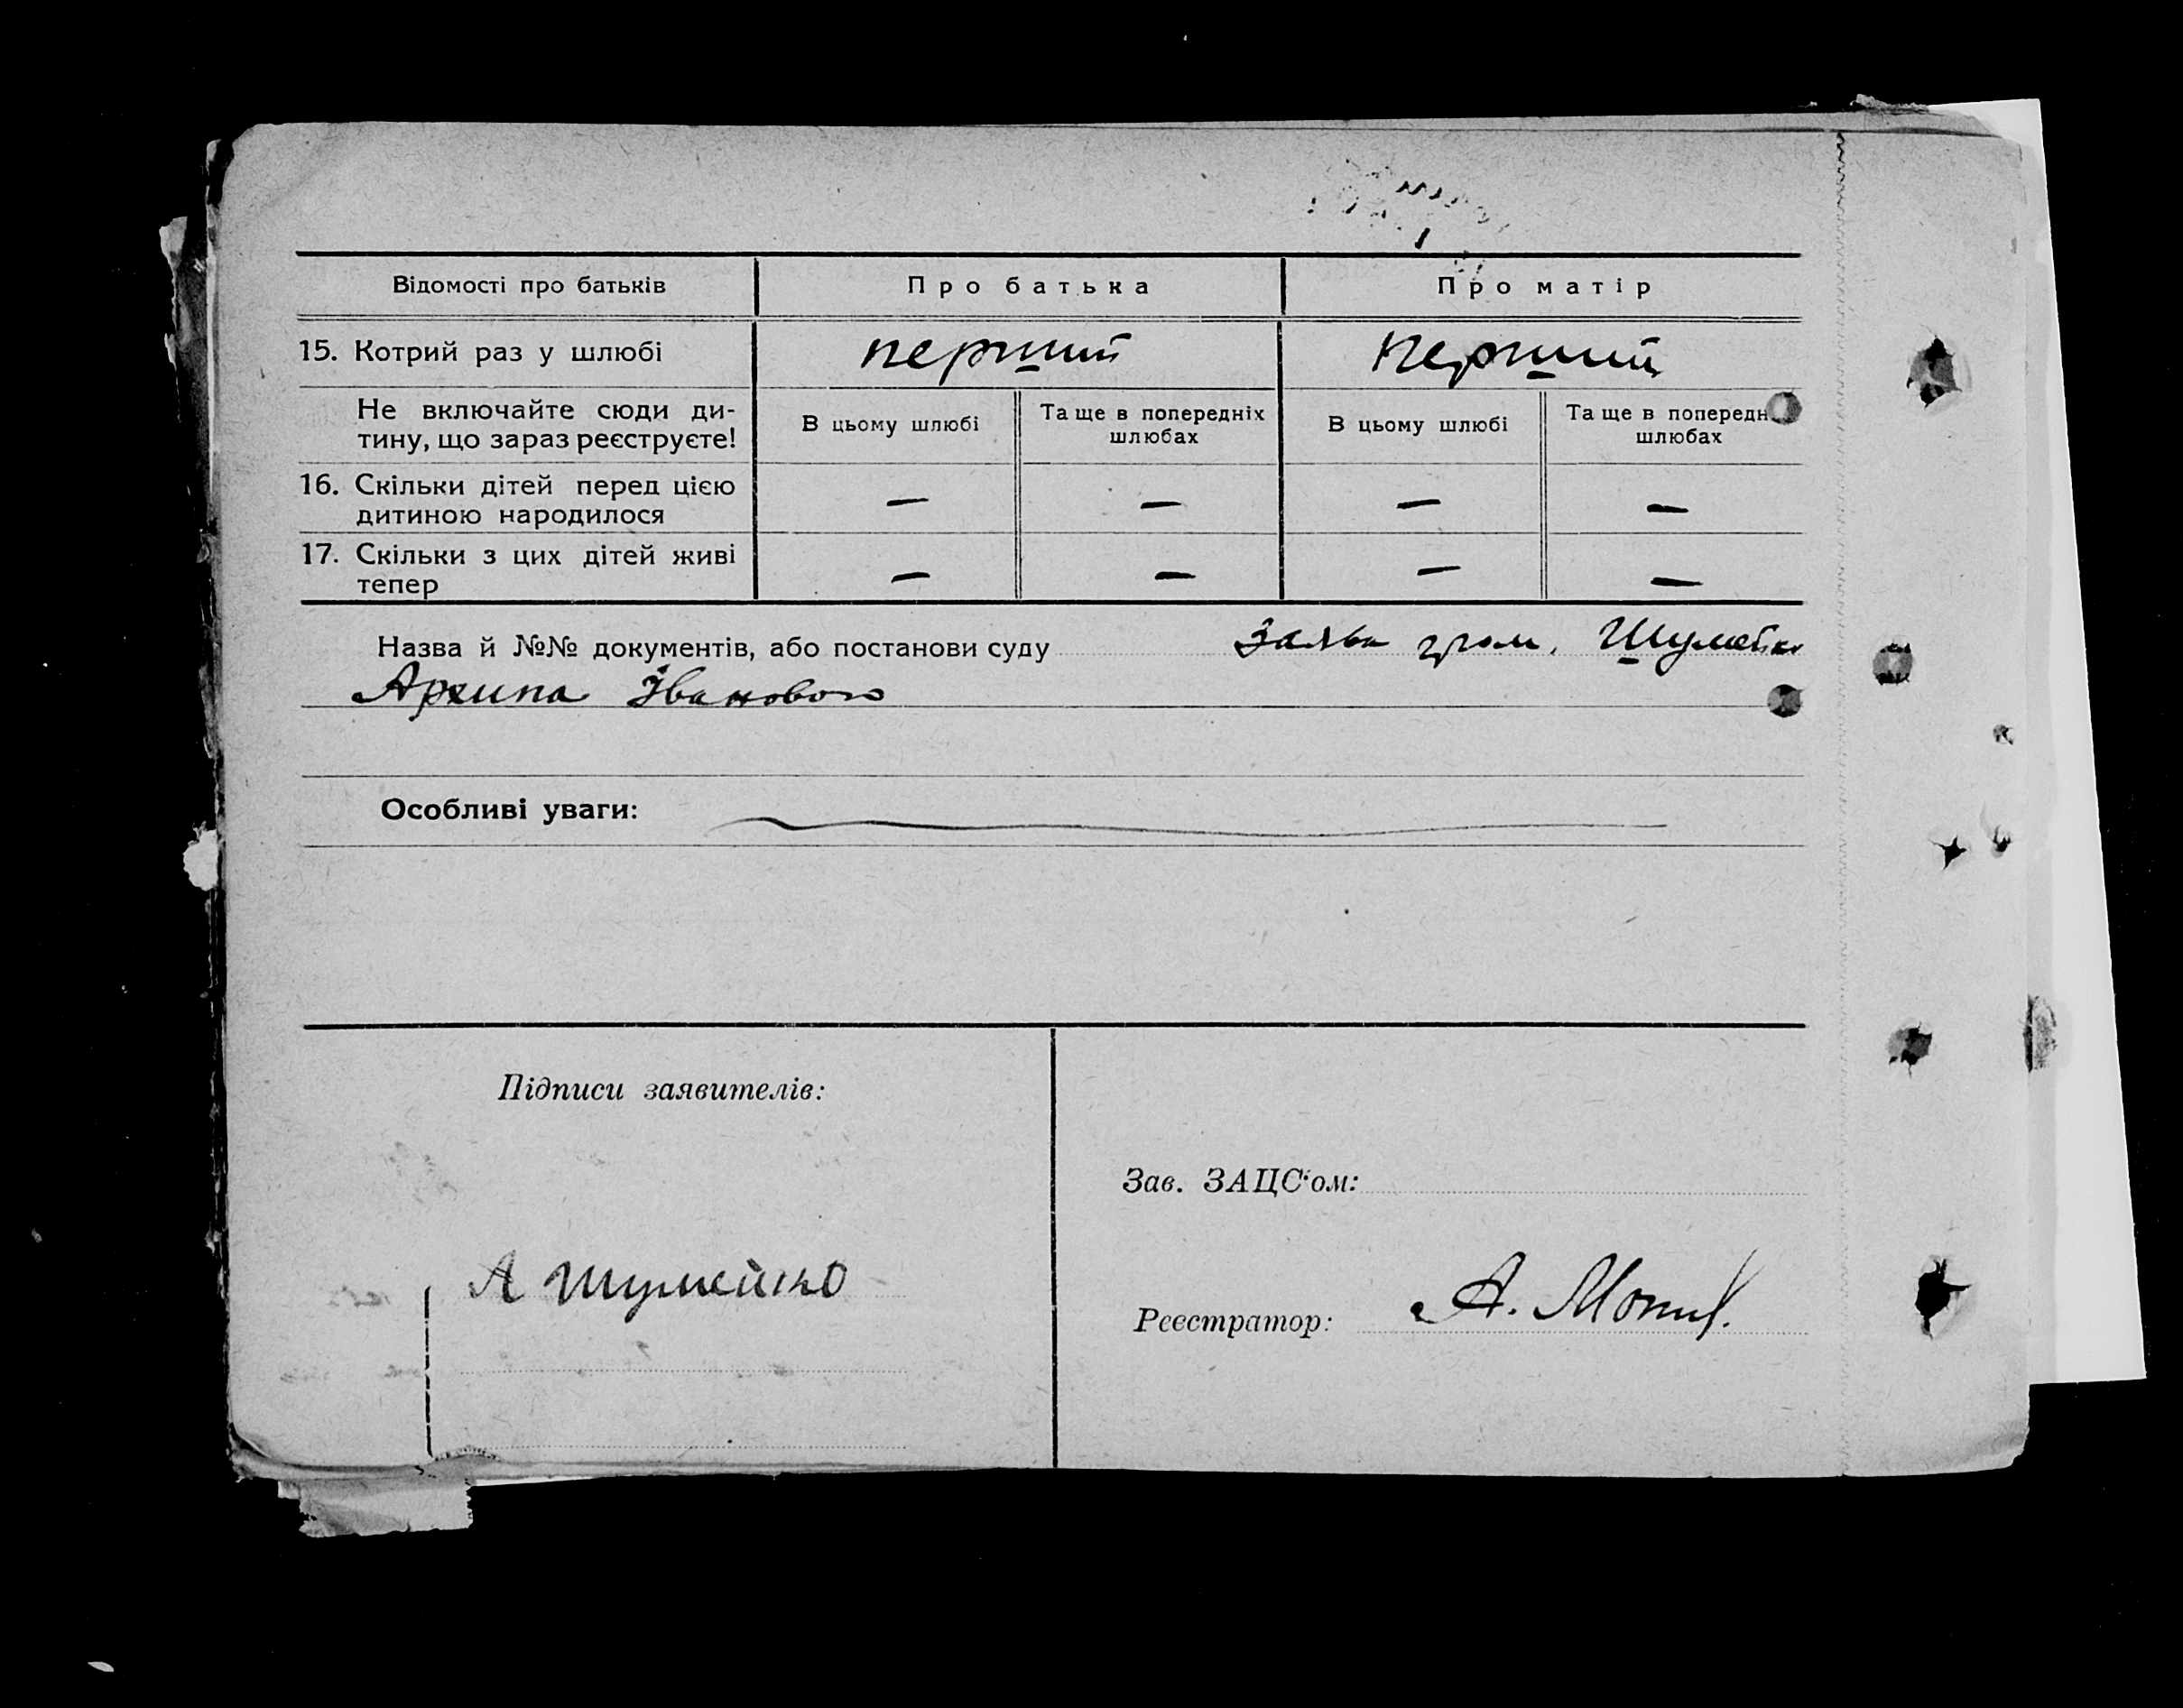 Відомості про батьків Про батька Про матір
15. Котрий раз у шлюбі перший перший
Не включайте сюди ди-
тину, що зараз реєструєте!
В цьому шлюбі Та ще в попередніх
шлюбах
В цьому шлюбі Та ще в попередн
шлюбах
16. Скільки дітей перед цією
дитиною народилося
— — — —
17. Скільки з цих дітей живі
тепер
— — — —
Назва й №№ документів, або постанови суду заява гром. Шумейко
Архипа Іванового
Особливі уваги:
Підписи заявителів:
Зав. ЗАЦС'ом:
А Шумейко
Реєстратор: А.